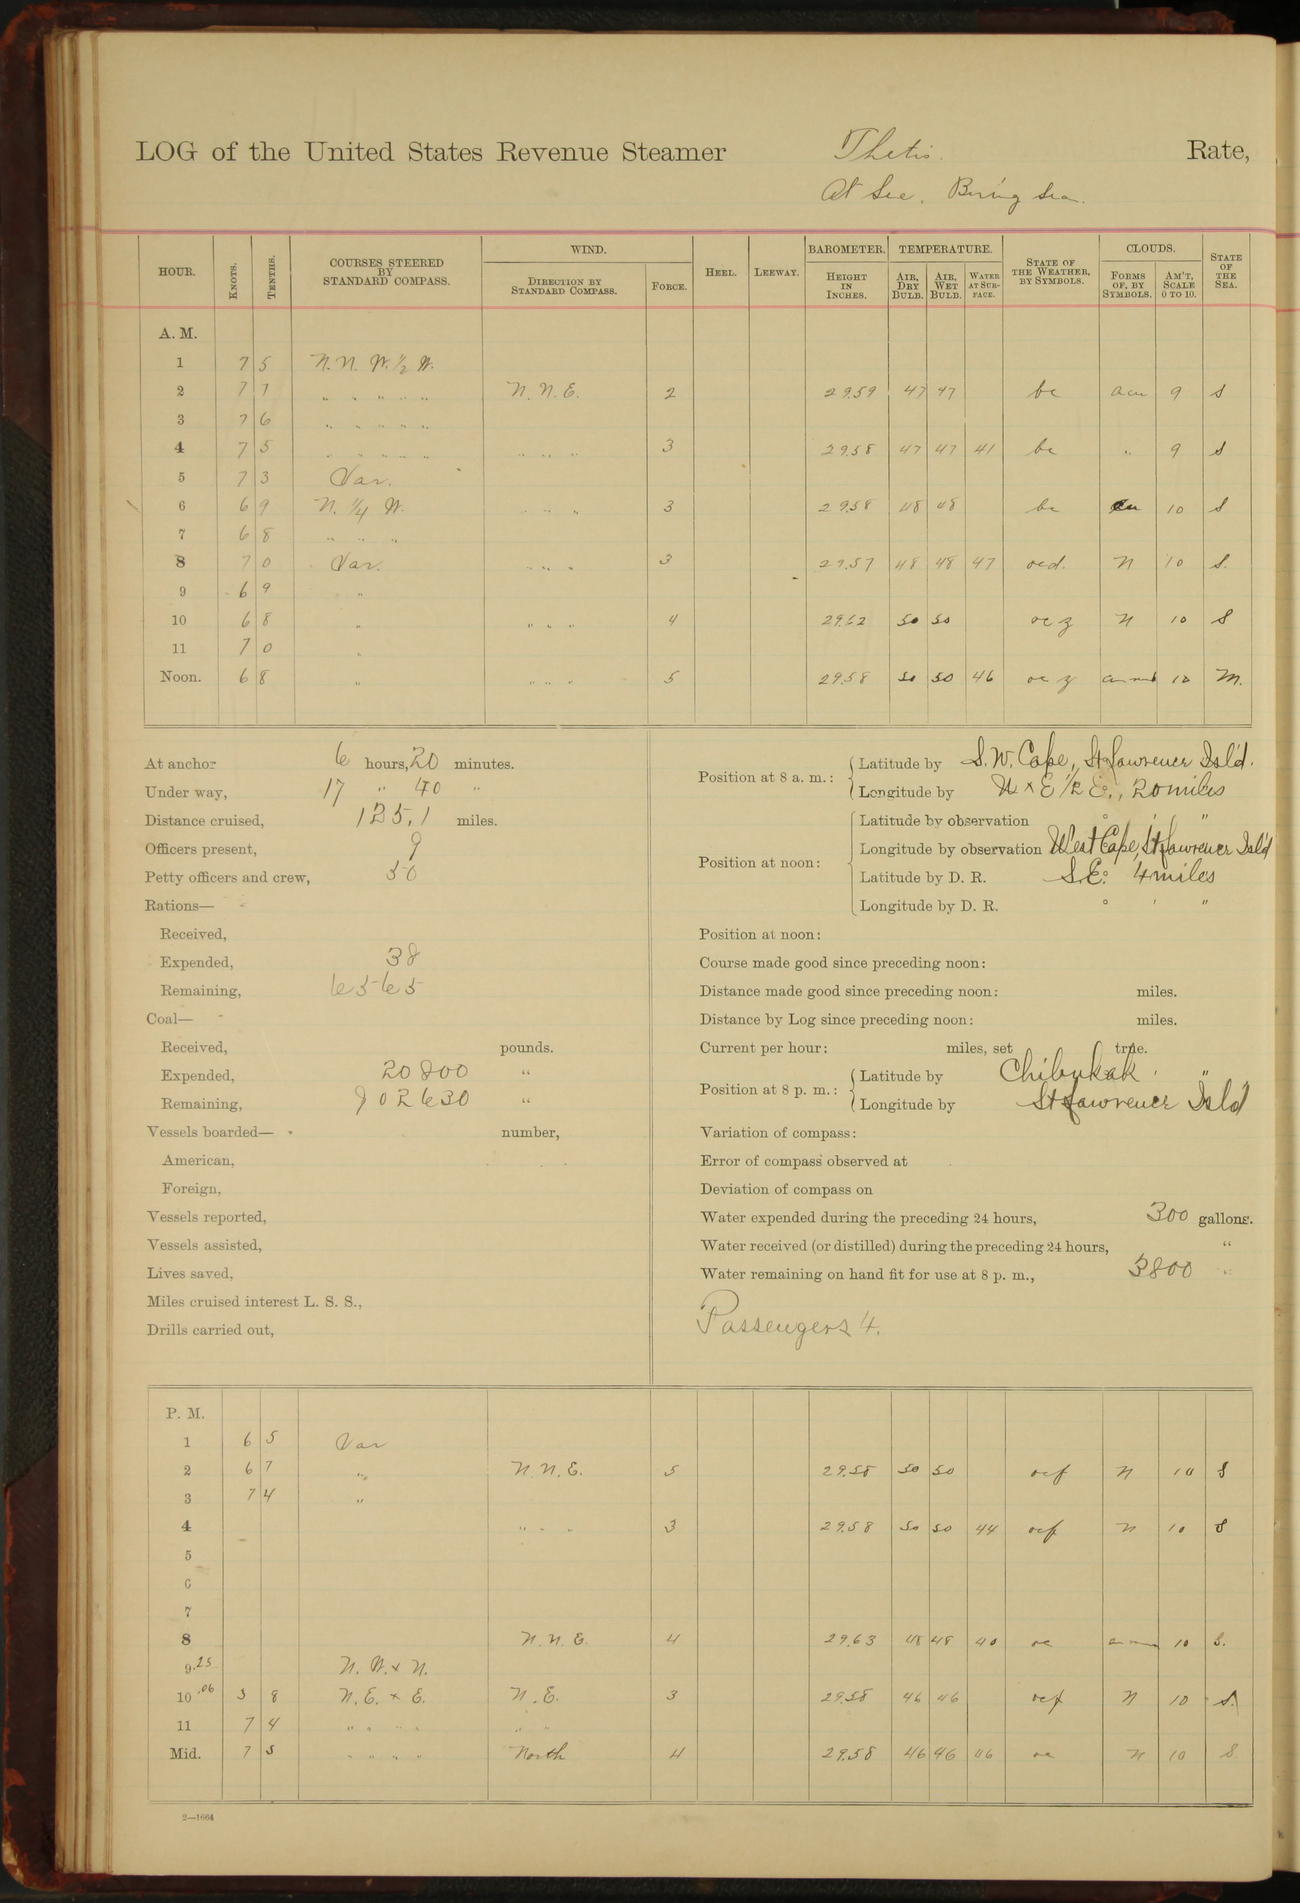 LOG of the United States Revenue Steamer Thetis. Rate,
At Sea. Bering Sea.
HOUR. KNOTS. TENTHS. COURSES STEERED BY STANDARD COMPASS. WIND. DIRECTION BY STANDARD COMPASS. FORCE. HEEL. LEEWAY. BAROMETER. HEIGHT IN INCHES. TEMPERATURE. AIR, DRY BULB. AIR, WET BULB. WATER AT SURFACE. STATE OF THE WEATHER, BY SYMBOLS. CLOUDS. FORMS OF, BY SYMBOLS. AM'T, SCALE 0 TO 10. STATE OF THE SEA.
A. M.
1 7 5 N. N. W. ½ W.
2 7 7 " " " " " N. N. E. 2 29.59 47 47 bc acu 9 S
3 7 6 " " " " "
4 7 5 " " " " " " " " 3 29.58 47 47 41 bc " 9 S
5 7 3 Var.
6 6 9 N. ¼ W. " " " 3 29.58 48 48 bc cu 10 S
7 6 8 " " "
8 7 0 Var. " " " 3 29.57 48 48 47 ocd. N 10 S.
9 6 9 "
10 6 8 " " " " 4 29.62 50 50 oc z N 10 S
11 7 0 "
Noon. 6 8 " " " " 5 29.58 50 50 46 oc z 10 M.
At anchor 6 hours, 20 minutes.
Under way, 17 " 40 "
Distance cruised, 125,1 miles.
Officers present, 9
Petty officers and crew, 50
Rations—
Received,
Expended, 38
Remaining, 6565
Coal—
Received, pounds.
Expended, 20800 "
Remaining, 902630 "
Vessels boarded— number,
American,
Foreign,
Vessels reported,
Vessels assisted,
Lives saved,
Miles cruised interest L. S. S.,
Drills carried out,
Position at 8 a. m.: Latitude by S. W. Cape, St Lawrence Isl'd.
Longitude by N x E ½ E., 20 miles
Position at noon: Latitude by observation ° ' "
Longitude by observation West Cape, St Lawrence Isl'd
Latitude by D. R. S.E. 4 miles
Longitude by D. R. ° ' "
Position at noon:
Course made good since preceding noon:
Distance made good since preceding noon: miles.
Distance by Log since preceding noon: miles.
Current per hour: miles, set true.
Position at 8 p. m.: Latitude by Chibukak ' "
Longitude by St Lawrence Isl'd
Variation of compass:
Error of compass observed at
Deviation of compass on
Water expended during the preceding 24 hours, 300 gallons.
Water received (or distilled) during the preceding 24 hours, "
Water remaining on hand fit for use at 8 p. m., 3800 "
Passengers 4.
P. M.
1 6 5 Var
2 6 7 " N. N. E. 5 29.58 50 50 ocf N 10 S
3 7 4 "
4 " " " 3 29.58 50 50 44 ocf N 10 S
5
6
7
8 N. N. E. 4 29.63 48 48 40 oc 10 S.
9.25 N. W. x N.
10.06 3 8 N. E. x E. N. E. 3 29.58 46 46 ocf N 10 S.
11 7 4 " " " " " "
Mid. 7 5 " " " " North 4 29.58 46 46 46 oc N 10 S
2—1664